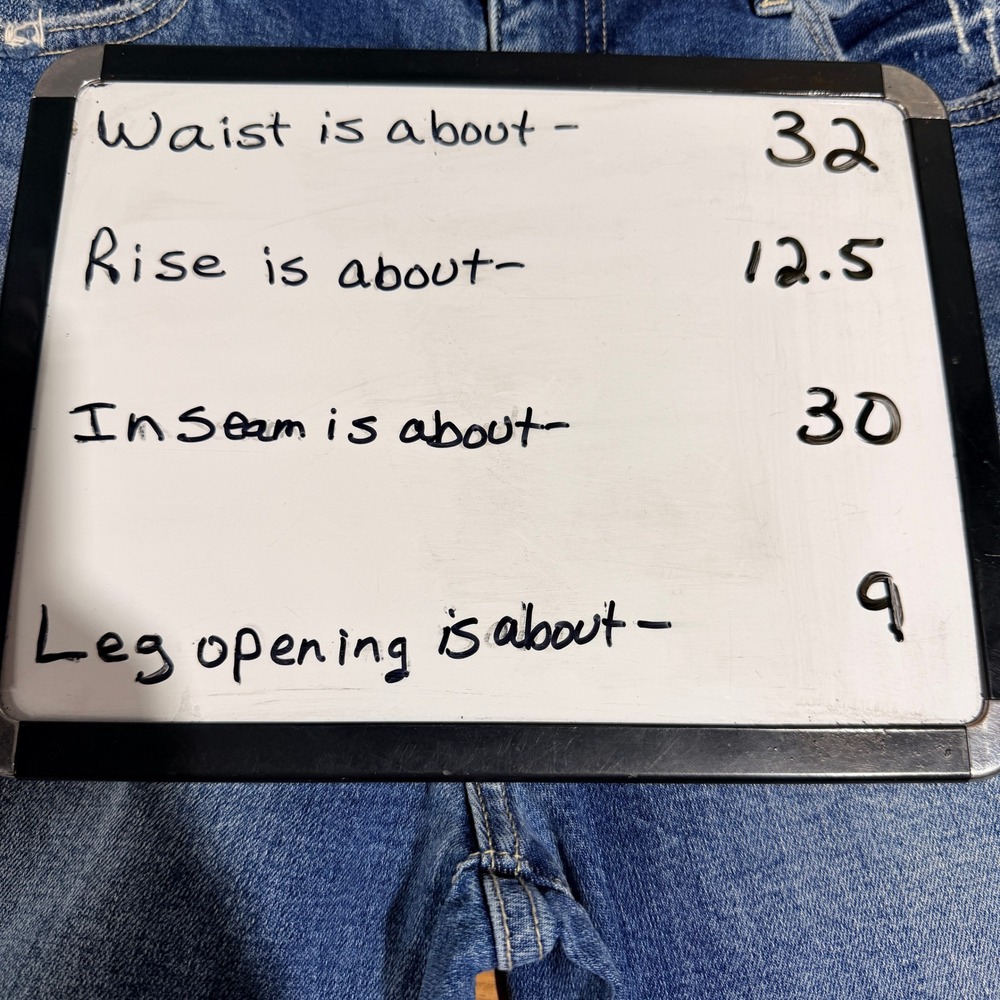 Waist is about - 32
Rise is about - 12.5
Inseam is about - 30
Leg opening is about - 9